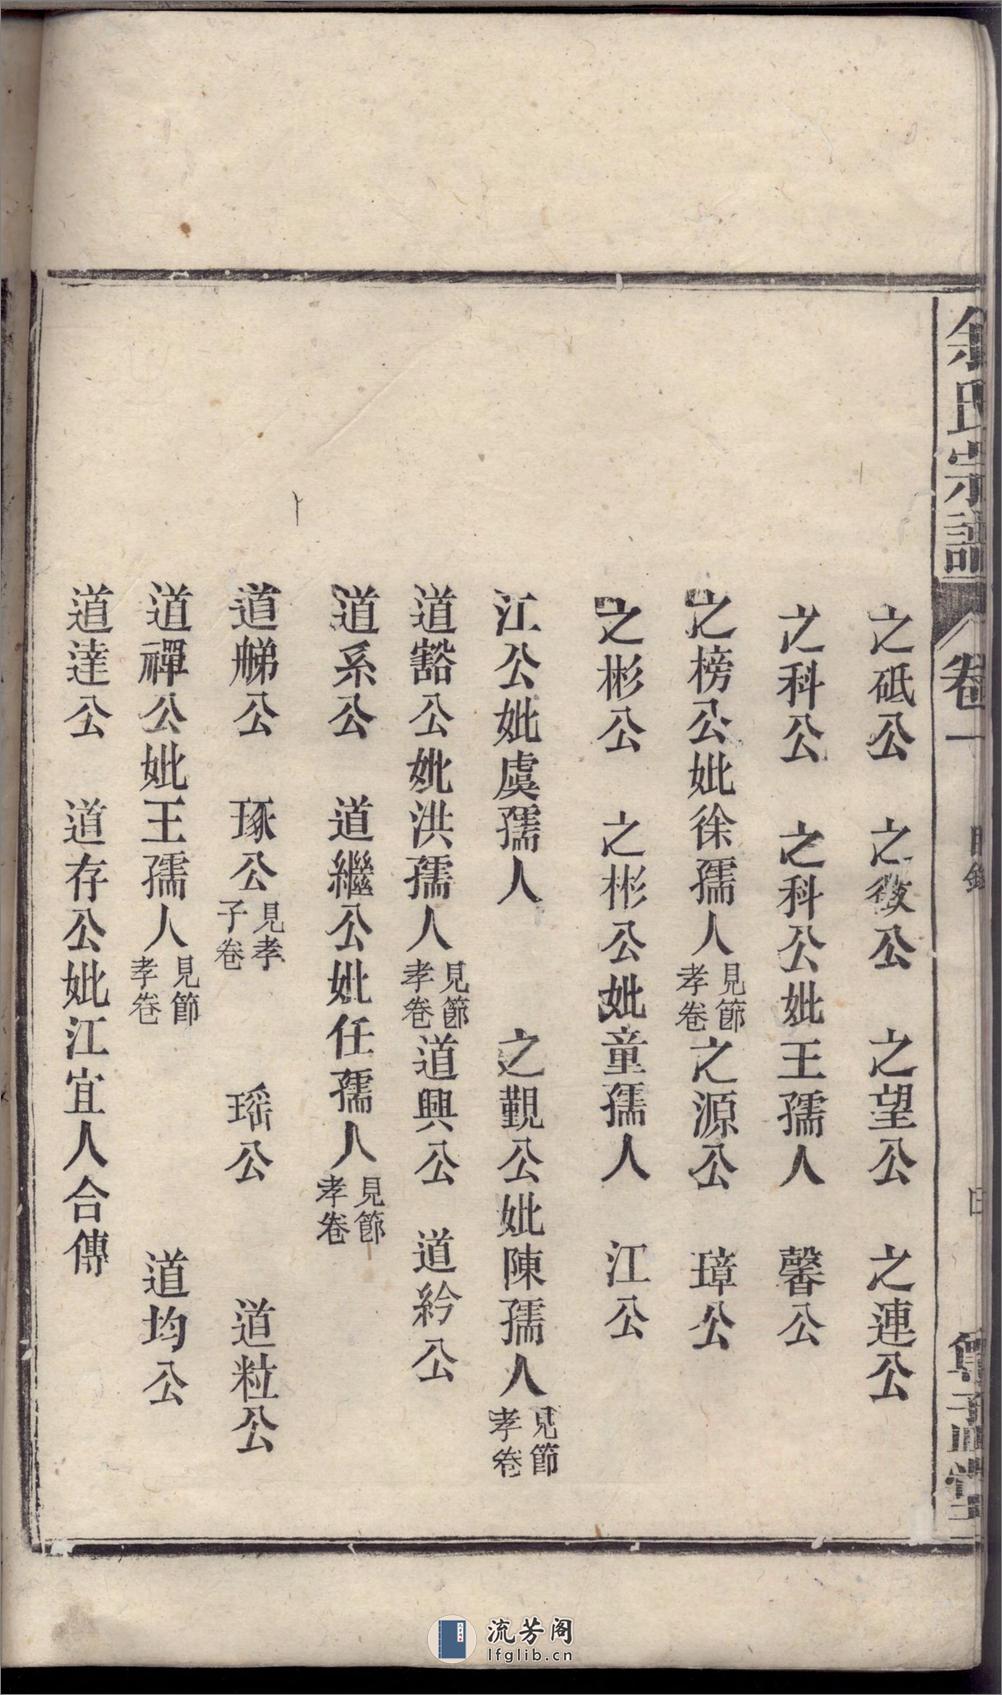 余氏宗譜 卷一 目錄
之砥公 之發公 之望公 之連公
之科公 之科公妣王孺人 馨公
之榜公妣徐孺人見節孝卷 之源公 璋公
之彬公 之彬公妣童孺人 江公
江公妣虞孺人 之覲公妣陳孺人見節孝卷
道豁公妣洪孺人見節孝卷 道興公 道紟公
道系公 道繼公妣任孺人見節孝卷
道觪公 琢公見孝子卷 瑶公 道粒公
道禪公妣王孺人見節孝卷 道均公
道達公 道存公妣江宜人合傳
流芳阁
lfglib.cn